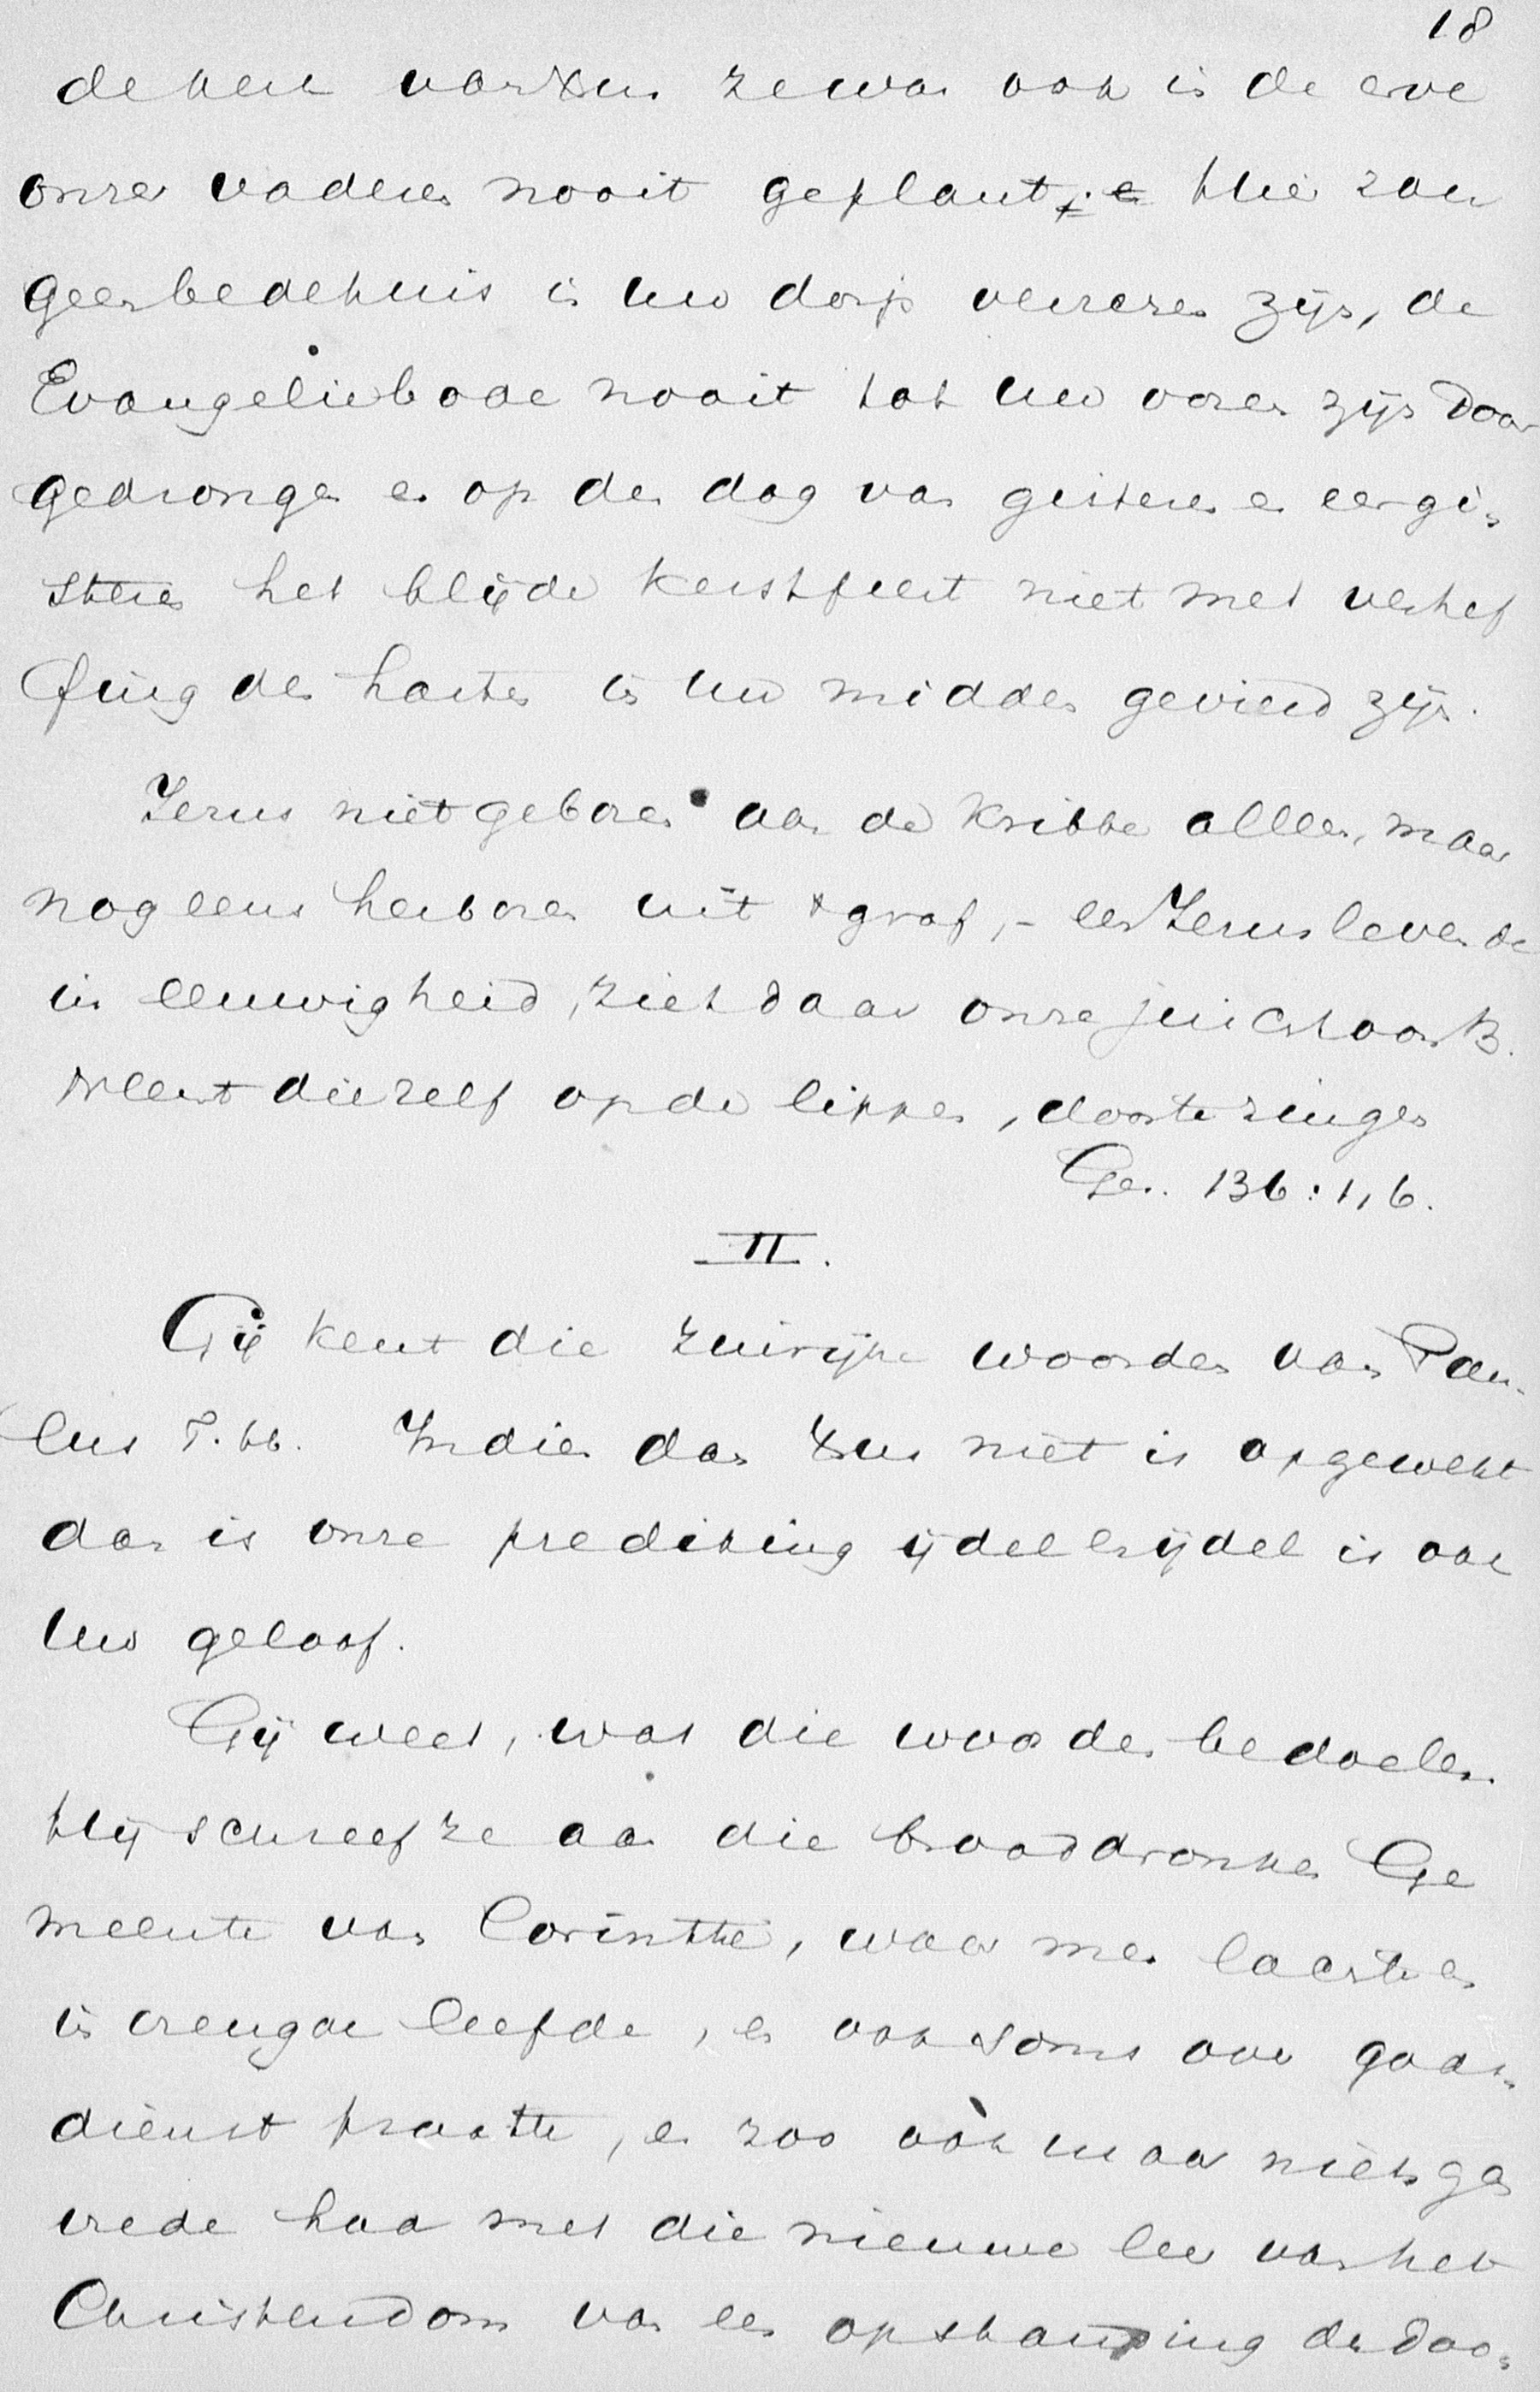 18
de kerk van Xus zewas ook in de erve
onzer vaderen nooit geplant, Hier zou
geen bedehuis in uw dorp verrezen zijn, de
Evangeliebode nooit tot uw ooren zijn door
gedrongen en op den dag van gisteren en eergi-
steren het blijde kerstfeest niet met verhef
fing des harten in uw midden gevierd zijn.
Jezus niet geboren aan de kribbe alleen, maar
nog eens herboren uit 't graf, - een Jezus levende
in eeuwigheid, ziet daar onze juichtoon
Neemt die zelf op de lippen, door te zingen
Gez. 136:1,6.
II.
Gij kent die woorden van Pau-
lus T. bb. Indien dan Xus niet is opgewekt
dan is onze prediking ijdel en ijdel is ook
uw geloof.
Gij weet, wat die woorden bedoelen.
Hij schreef ze aan die brooddronken Ge
meente van Corinthe, waar men lachte en
in vreugde leefde, en ook soms over gods-
dienst praatte, en zoo ook maar niets geen
vrede had met die nieuwe leer van het
Christendom van een opstanding der doo-